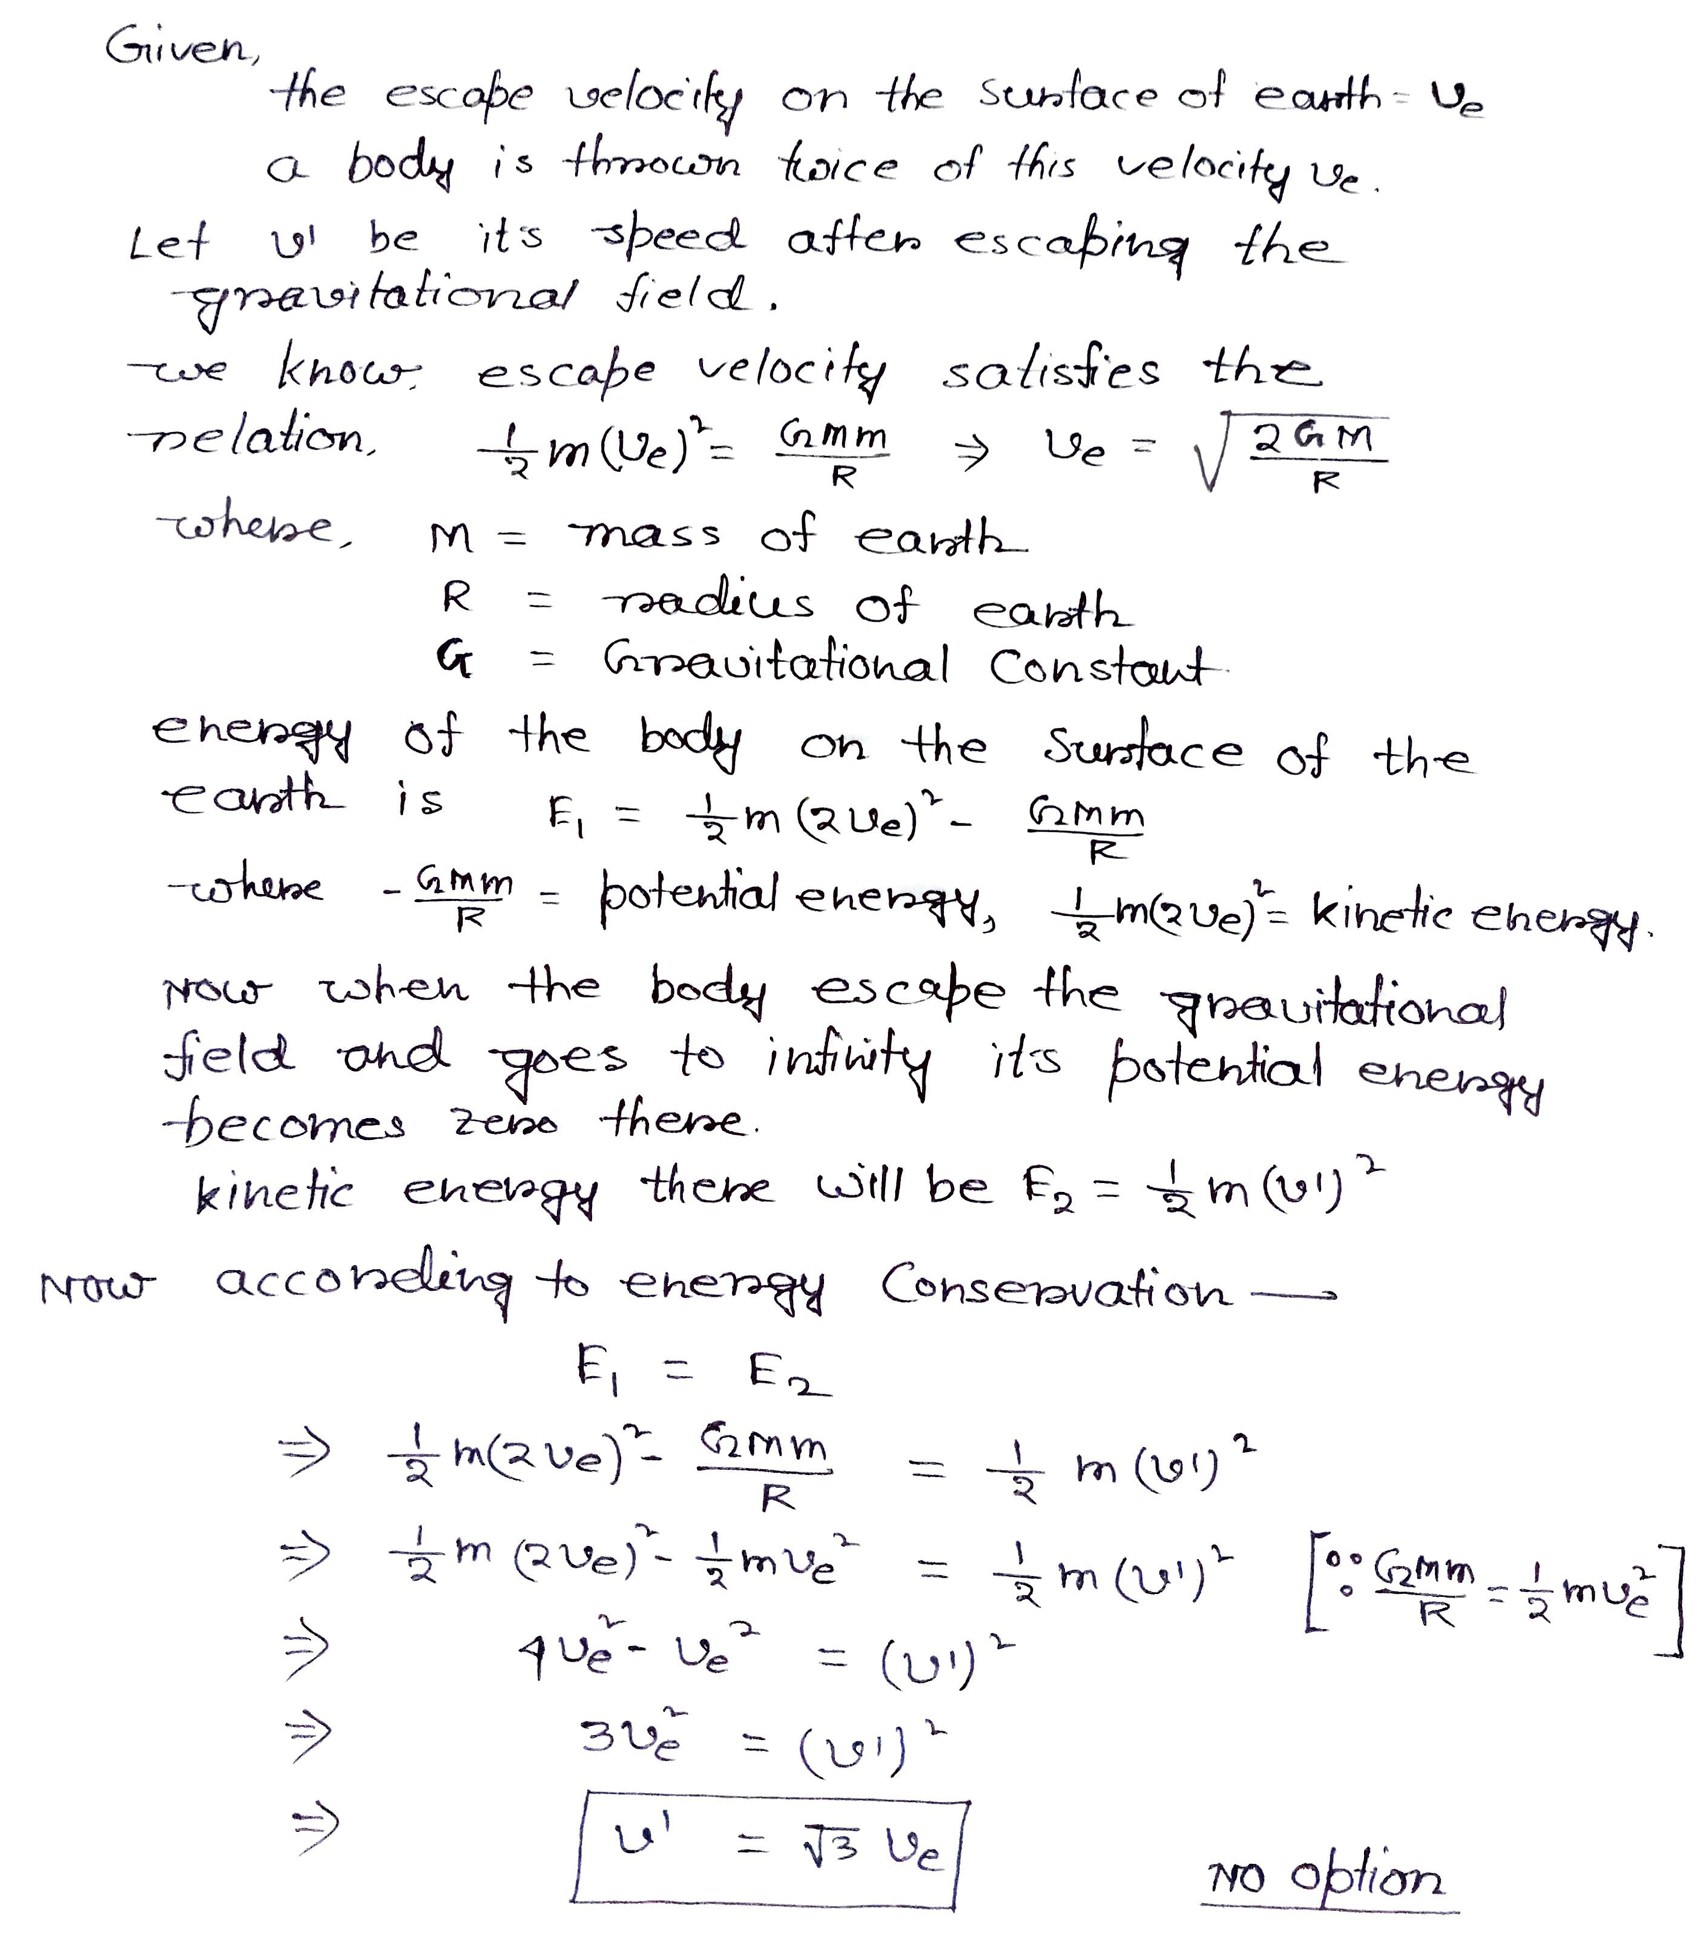 Given,
the escape velocity on the surface of earth = ve
a body is thrown twice of this velocity ve.
Let v' be it's speed after escaping the
gravitational field.
we know, escape velocity satisfies the
relation, 1/2 m(ve)² = GMm/R ⇒ ve = √(2GM/R)
where, M = mass of earth
R = radius of earth
G = Gravitational Constant
energy of the body on the surface of the
earth is E₁ = 1/2 m(2ve)² - GMm/R
where - GMm/R = potential energy, 1/2 m(2ve)² = kinetic energy.
Now when the body escape the gravitational
field and goes to infinity it's potential energy
becomes zero there.
kinetic energy there will be E₂ = 1/2 m(v')²
Now according to energy Conservation →
E₁ = E₂
⇒ 1/2 m(2ve)² - GMm/R = 1/2 m(v')²
⇒ 1/2 m(2ve)² - 1/2 mve² = 1/2 m(v')² [∵ GMm/R = 1/2 mve²]
⇒ 4ve² - ve² = (v')²
⇒ 3ve² = (v')²
⇒ v' = √3 ve
No option